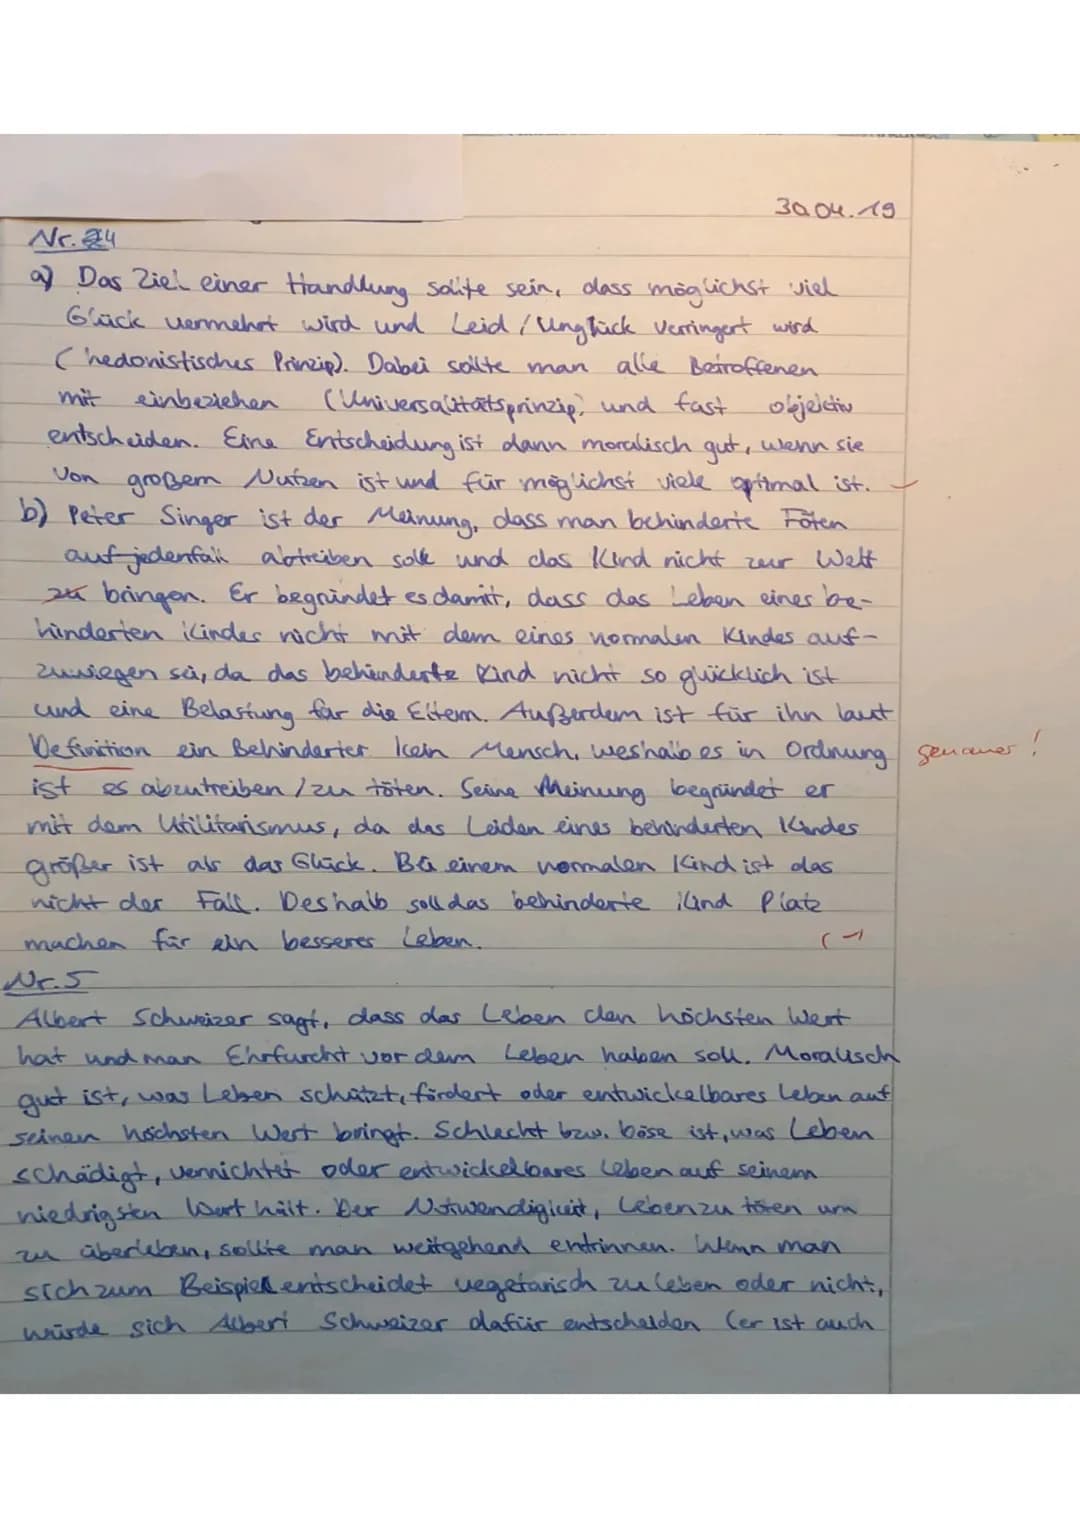 30.04.19
Nr. 4
a) Das Ziel einer Handlung sollte sein, dass möglichst viel
Glück vermehrt wird und Leid / Unglück verringert wird
(hedonistisches Prinzip). Dabei sollte man alle Betroffenen
mit einbeziehen (Universalitätsprinzip) und fast objektiv
entscheiden. Eine Entscheidung ist dann moralisch gut, wenn sie
von großem Nutzen ist und für möglichst viele optimal ist.
b) Peter Singer ist der Meinung, dass man behinderte Föten
auf jedenfall abtreiben solle und das Kind nicht zur Welt
zu bringen. Er begründet es damit, dass das Leben eines be-
hinderten Kindes nicht mit dem eines normalen Kindes auf-
zuwiegen sei, da das behinderte Kind nicht so glücklich ist
und eine Belastung für die Eltern. Außerdem ist für ihn laut
Definition ein Behinderter kein Mensch, weshalb es in Ordnung genauer!
ist es abzutreiben / zu töten. Seine Meinung begründet er
mit dem Utilitarismus, da das Leiden eines behinderten Kindes
größer ist als das Glück. Bei einem normalen Kind ist das
nicht der Fall. Deshalb soll das behinderte Kind Platz
machen für ein besseres Leben.
Nr. 5
Albert Schweizer sagt, dass das Leben den höchsten Wert
hat und man Ehrfurcht vor dem Leben haben soll. Moralisch
gut ist, was Leben schützt, fördert oder entwickelbares Leben auf
seinen höchsten Wert bringt. Schlecht bzw. böse ist, was Leben
schädigt, vernichtet oder entwickelbares Leben auf seinem
niedrigsten Wert hält. Der Notwendigkeit, Leben zu töten um
zu überleben, sollte man weitgehend entrinnen. Wenn man
sich zum Beispiel entscheidet vegetarisch zu leben oder nicht,
würde sich Albert Schweizer dafür entscheiden (er ist auch